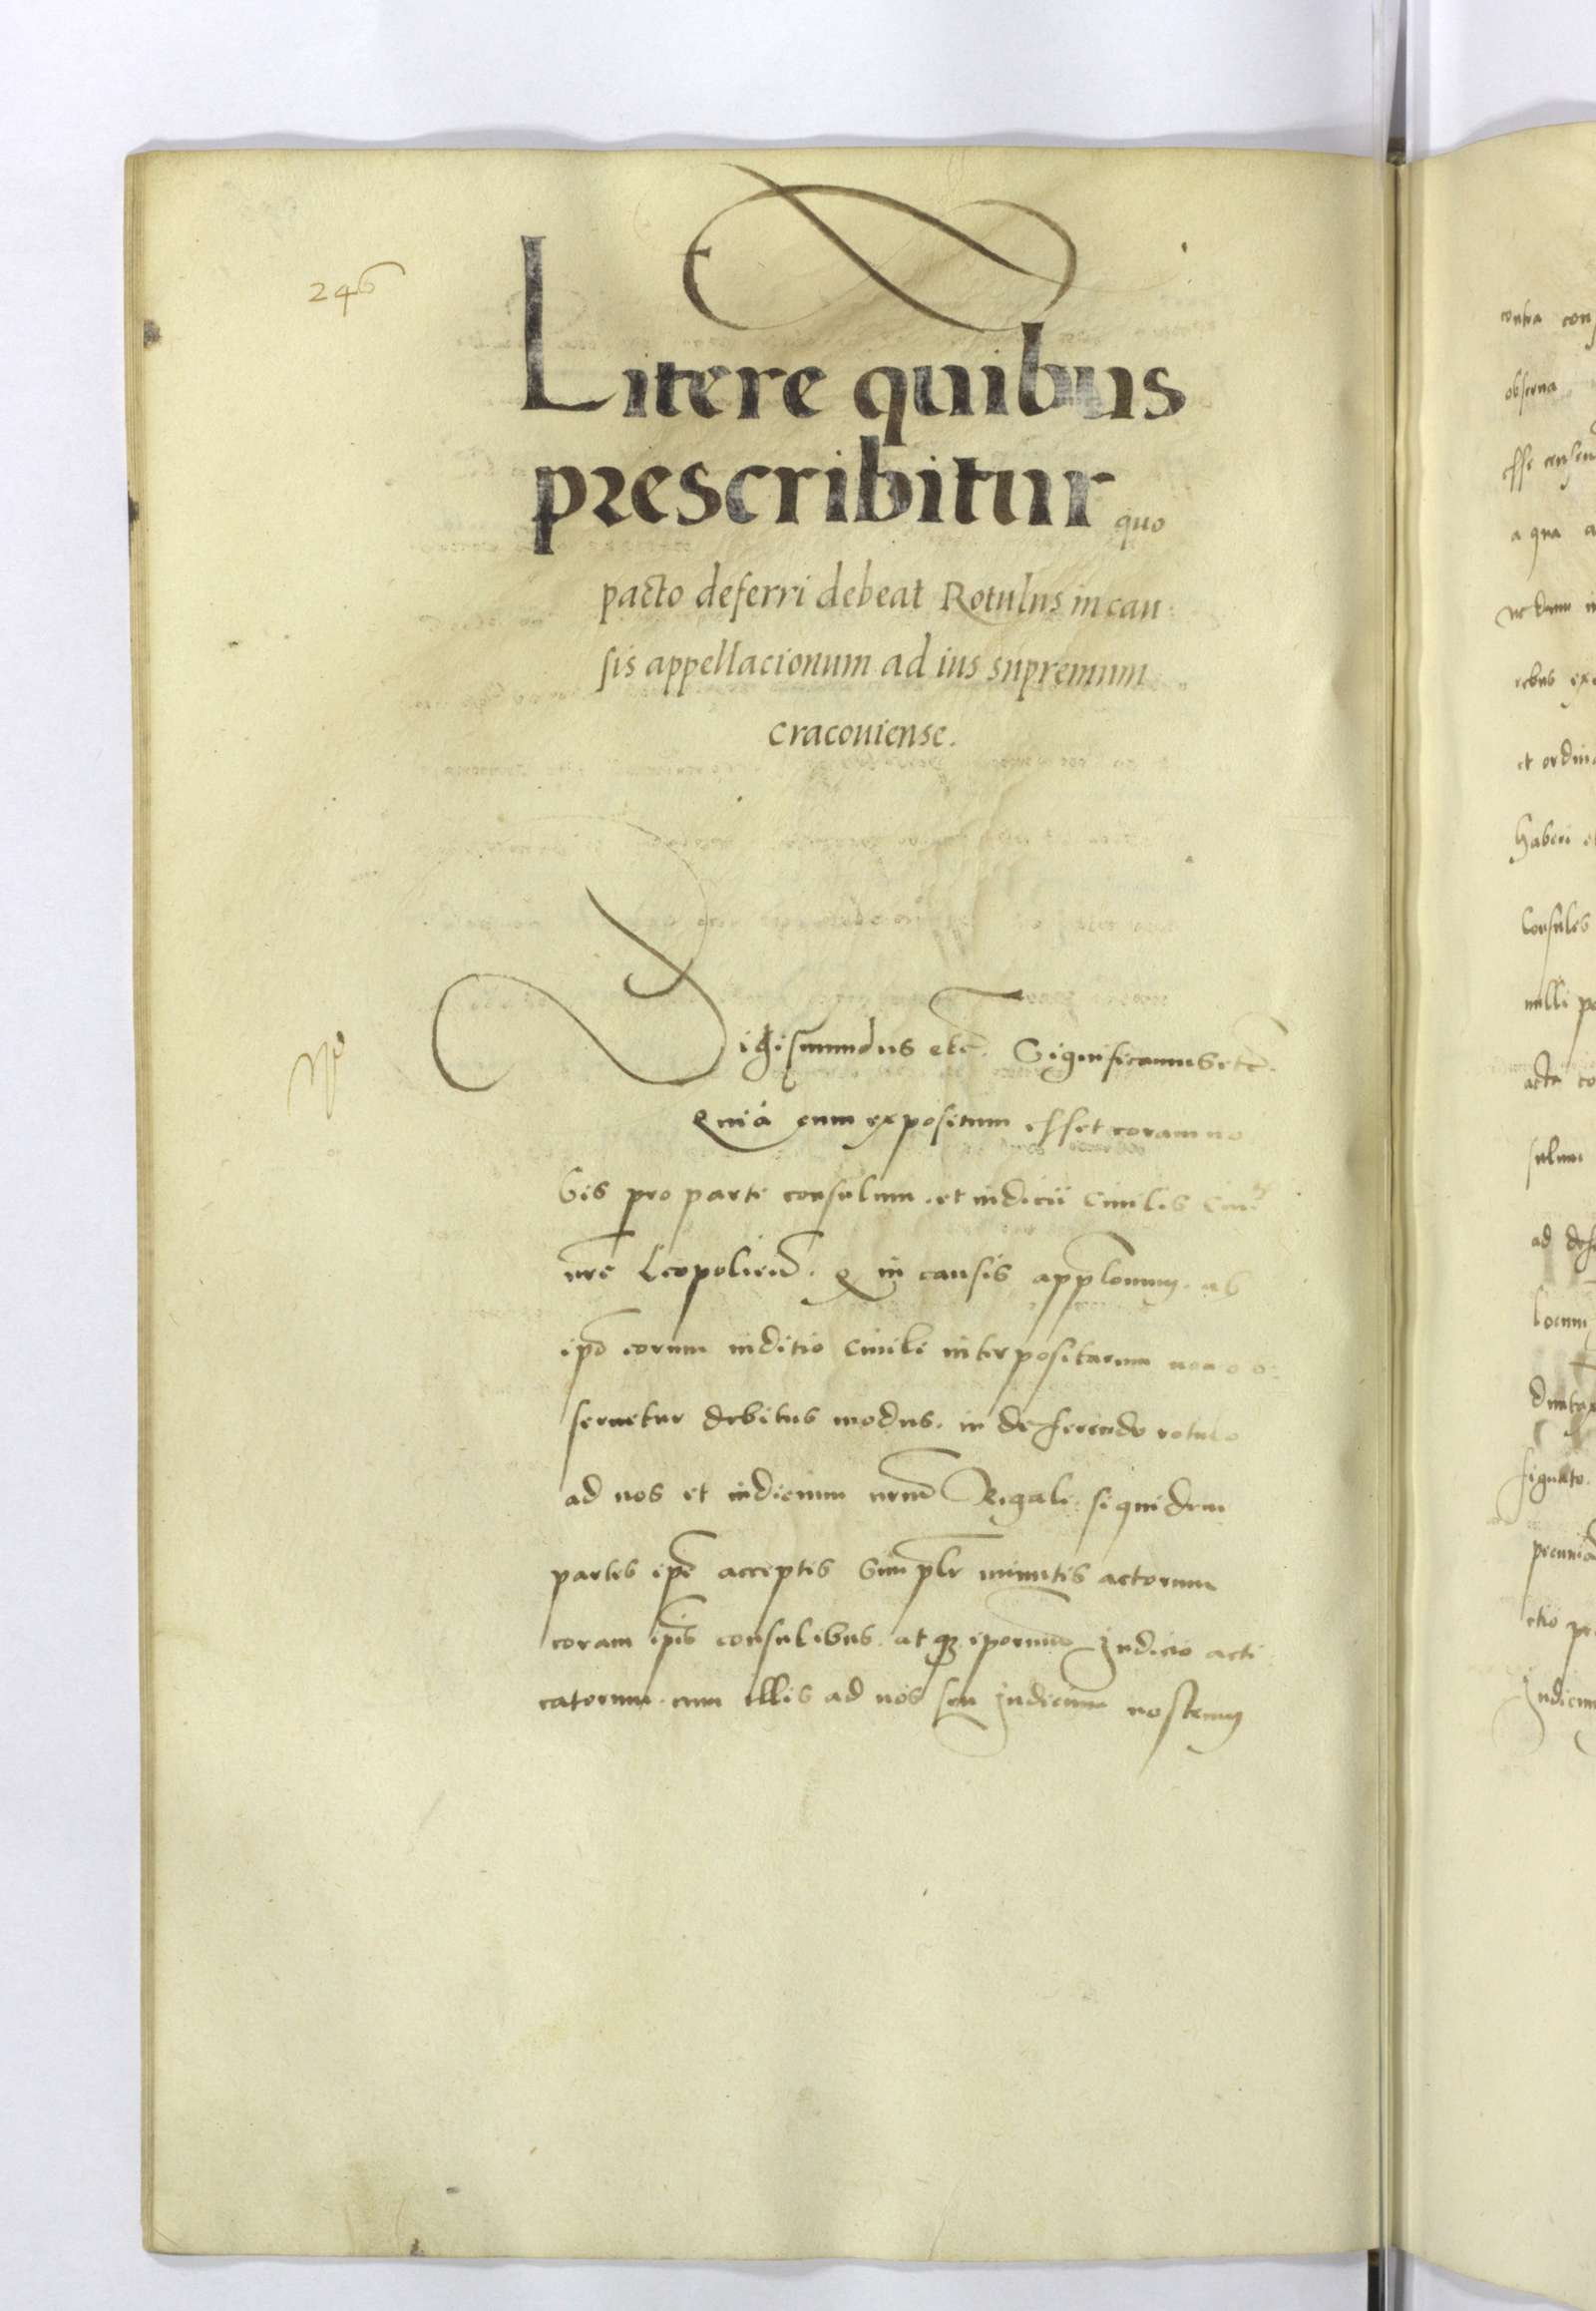 246
Litere quibus
prescribitur quo
pacto deferri debeat Rotulus in cau
sis appellacionum ad ius supremum
cracouiense.
Sigismundus etc. Significamus etc.
Quia cum expositum esset coram no
bis pro parte consulum et iudicii Ciuilis
nre Leopolien. q in causis applonum ab
ipo eorum iuditio Ciuili interpositarum non o
seruetur debitus modus in deferendo rotulo
ad nos et iudicium nrm Regale siquidem
partes ipe acceptis simplr minutis actorum
coram ipis consulibus atq iporum Judicio acti
catorum cum illis ad nos seu Judicium nostrum
contra con
obserua
esse censen
a qua a
rebus exe
et ordina
haberi et
Consules
nulli po
acta co
sulum
ad
locum
signato.
pecunia
Judicium